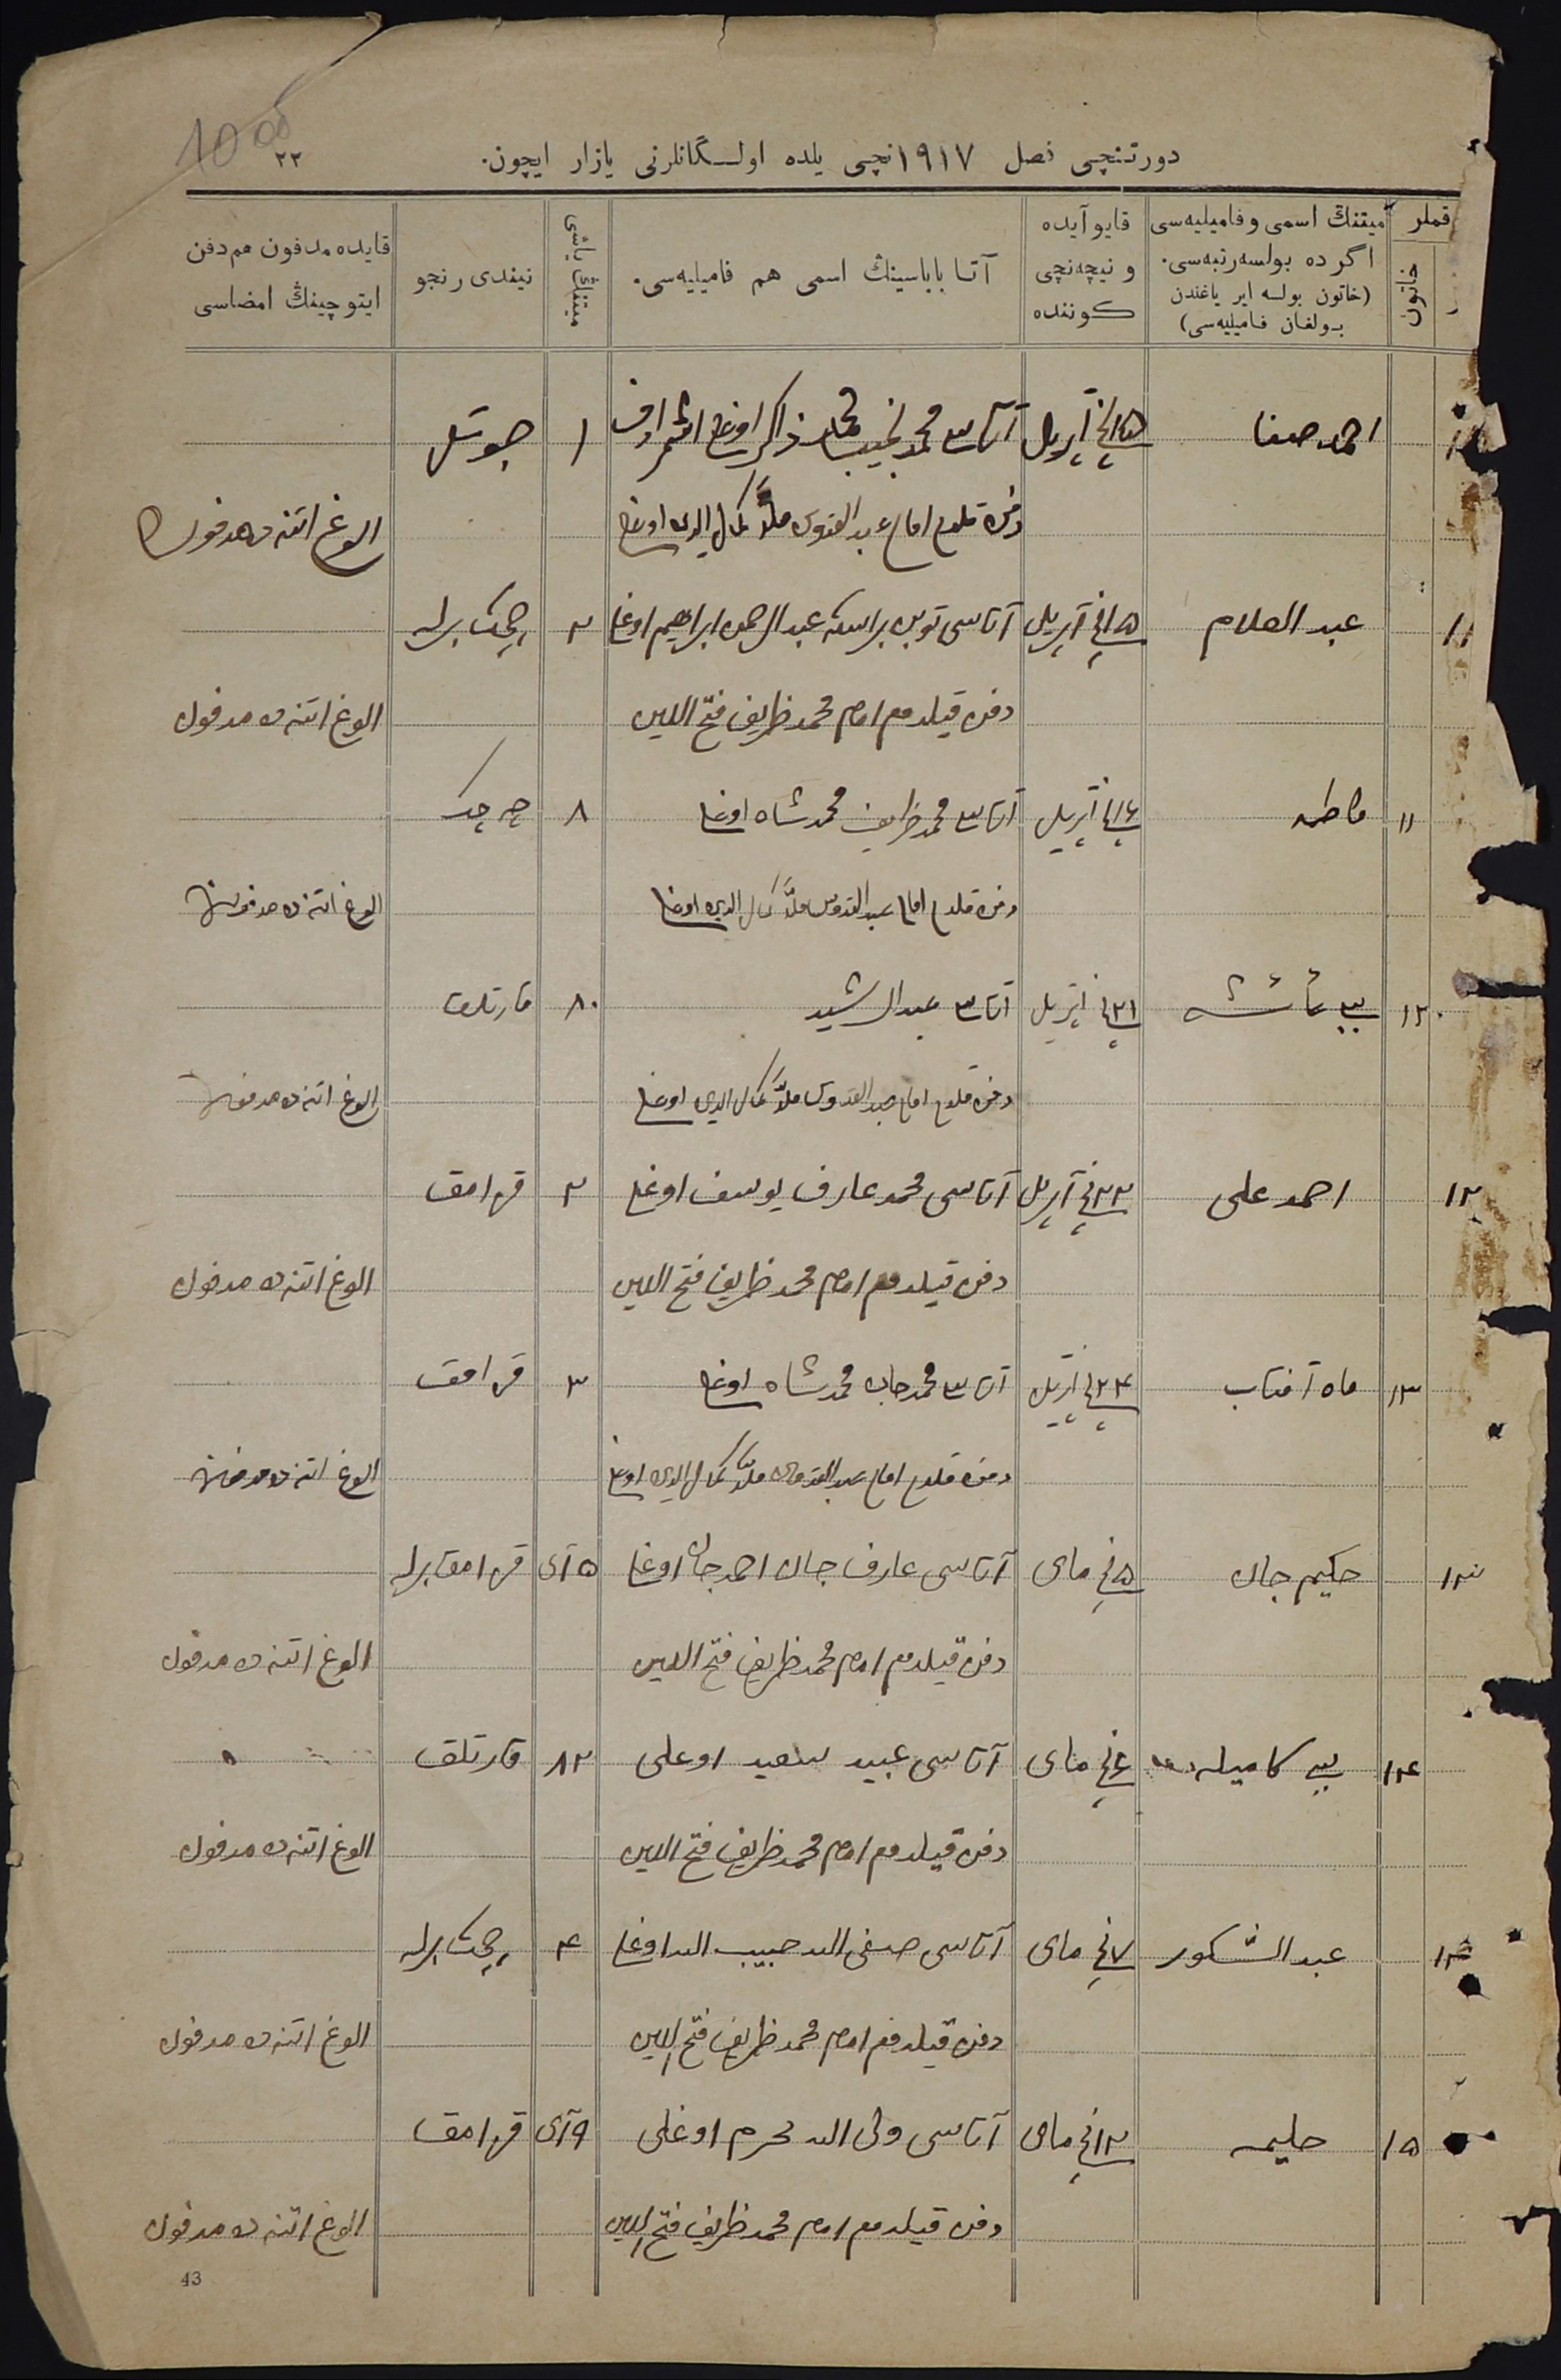 دورتنچی فصل ۱۹۱۷نچی یلده اولـگانلرنی یازار ایچون.
۲۲
قملر
خاتون
میتنڭ اسمی و فامیلیه‌سی اگر ده بولسه رتبه‌سی. (خاتون بولسه ایر یاغندن بـولغان فامیلیه‌سی)
قایو آیده و نیچه‌نچی كوننده
آتـا باباسینڭ اسمی هم فامیلیه‌سی.
میتنڭ یاشی
نیندی رنجو
قایده مدفون هم دفن ایتوچینڭ امضاسی
احمد صفا ۱۵نچی آپریل آتاسی محمد نجیب ذاکر اوغلی ۱ جوتل
دفن قلدم امام عبد القدوس ملّا کمال الدین اوغلی الوغ اتنه ده مدفون
۱۱ عبد السلام ۱۵نچی آپریل آتاسی عبد الرحمن ابراهیم اوغلی ۲ چچک برله
دفن قیلدم امام محمد ظریف فتح الدین الوغ اتنه ده مدفون
۱۱ فاطمه ۱۶نچی آپریل آتاسی محمد ظریف محمد شاه اوغلی ۸ چه چک
دفن قلدم امام عبد القدوس ملّا کمال الدین اوغلی الوغ اتنه ده مدفون
۱۲ بیبی عائشه ۲۱نچی آپریل آتاسی عبد الرشید ۸۰ قارتلق
دفن قلدم امام عبد القدوس ملّا کمال الدین اوغلی الوغ اتنه ده مدفون
۱۲ احمد علی ۲۲نچی آپریل آتاسی محمد عارف یوسف اوغلی ۲ قزامق
دفن قیلدم امام محمد ظریف فتح الدین الوغ اتنه ده مدفون
۱۳ ماه آفتاب ۲۴نچی آپریل آتاسی محمد جان محمد شاه اوغلی ۳ قزامق
دفن قلدم امام عبد القدوس ملّا کمال الدین اوغلی الوغ اتنه ده مدفون
۱۳ حکیم جان ۵نچی مای آتاسی عارف جان احمد جان اوغلی ۵ آی قزامق برله
دفن قیلدم امام محمد ظریف فتح الدین الوغ اتنه ده مدفون
۱۴ بیبی کامیله ۶نچی مای آتاسی عبید سعید اوغلی ۸۲ قارتلق
دفن قیلدم امام محمد ظریف فتح الدین الوغ اتنه ده مدفون
۱۴ عبد الشکور ۷نچی مای آتاسی صفی الله حبیب الله اوغلی ۴ چچک برله
دفن قیلدم امام محمد ظریف فتح الدین الوغ اتنه ده مدفون
۱۵ حلیمه ۱۲نچی مای آتاسی ولی الله محرم اوغلی ۹ آی قزامق
دفن قیلدم امام محمد ظریف فتح الدین الوغ اتنه ده مدفون
43